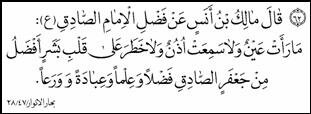 ٦٢ قَالَ مَالِكُ بْنُ أَنَسٍ عَنْ فَضْلِ الْإِمَامِ الصَّادِقِ (ع):
مَا رَأَتْ عَيْنٌ وَلَا سَمِعَتْ أُذُنٌ وَلَا خَطَرَ عَلَى قَلْبِ بَشَرٍ أَفْضَلُ
مِنْ جَعْفَرٍ الصَّادِقِ فَضْلًا وَعِلْمًا وَعِبَادَةً وَ وَرَعًا.
بحار الانوار/٤٧/٢٨